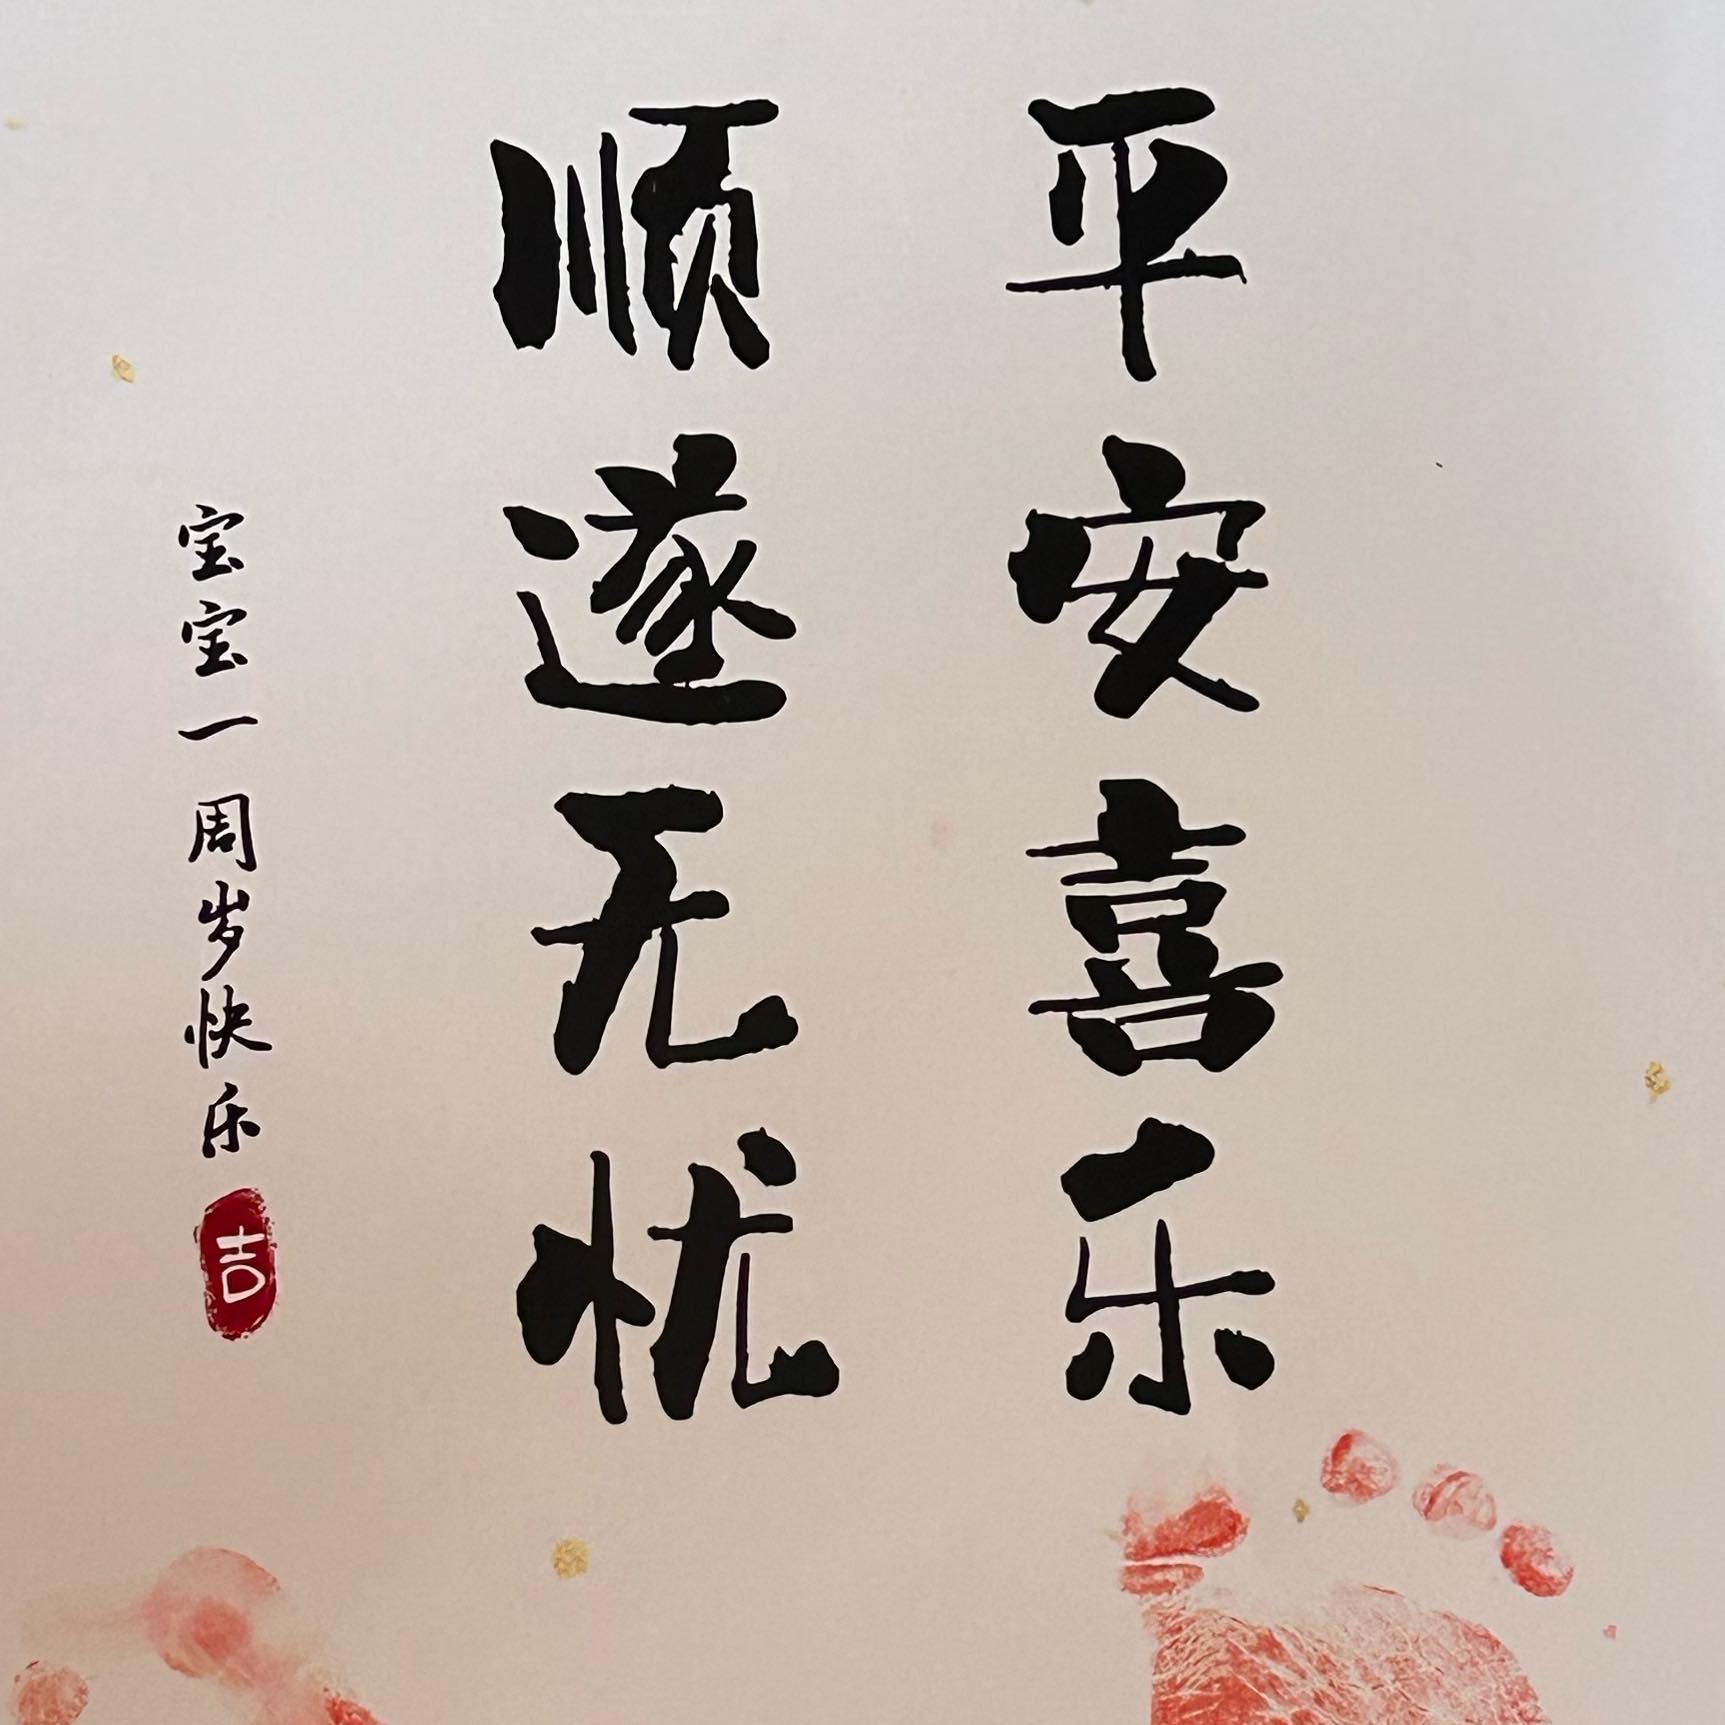 平安喜乐
顺遂无忧
宝宝一周岁快乐
吉